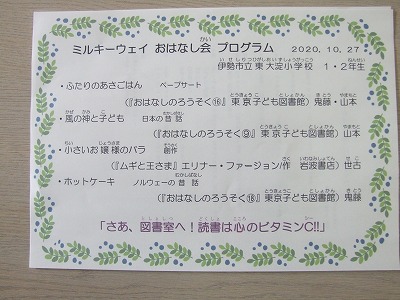 ミルキーウェイ おはなし会 プログラム 2020.10.27
伊勢市立東大淀小学校 1・2年生
・ふたりのあさごはん ペープサート
(『おはなしのろうそく⑯』東京子ども図書館) 鬼藤・山本
・風の神と子ども 日本の昔話
(『おはなしのろうそく⑨』東京子ども図書館) 山本
・小さいお嬢様のバラ 創作
(『ムギと王さま』エリナー・ファージョン/作 岩波書店) 世古
・ホットケーキ ノルウェーの昔話
(『おはなしのろうそく⑱』東京子ども図書館) 鬼藤
「さあ、図書室へ!読書は心のビタミンC!!」